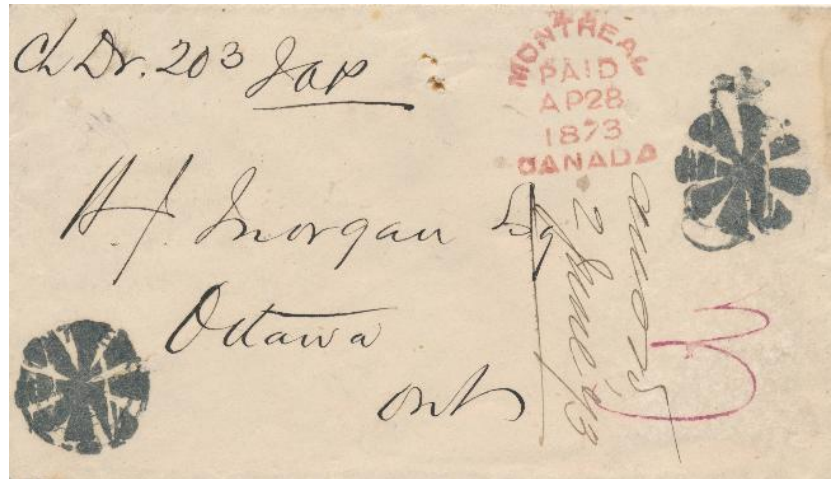 Ch Dr. 203
MONTREAL
PAID
AP28
1873
CANADA
H J Morgan Esq
Ottawa
Ont
2 June '73
3